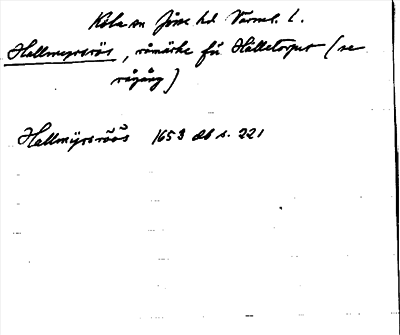 Köla sn Jösse hd Värml. l.
Hallmyrsrös, råmärke för Hälletorper (se
rågång)
Hallmÿrsröös 1653 db s. 221